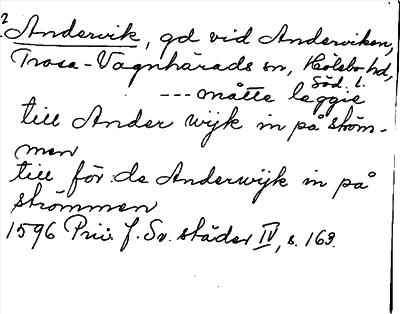 2 Andervik, gd vid Anderviken,
Trosa-Vagnhärads sn, Hölebo hd,
Söd. l.
--- måtte leggie
till Ander wijk in på ström-
men
till för de Anderwijk in på
strömmen
1596 Priv. f. Sv. städer IV, s. 163.